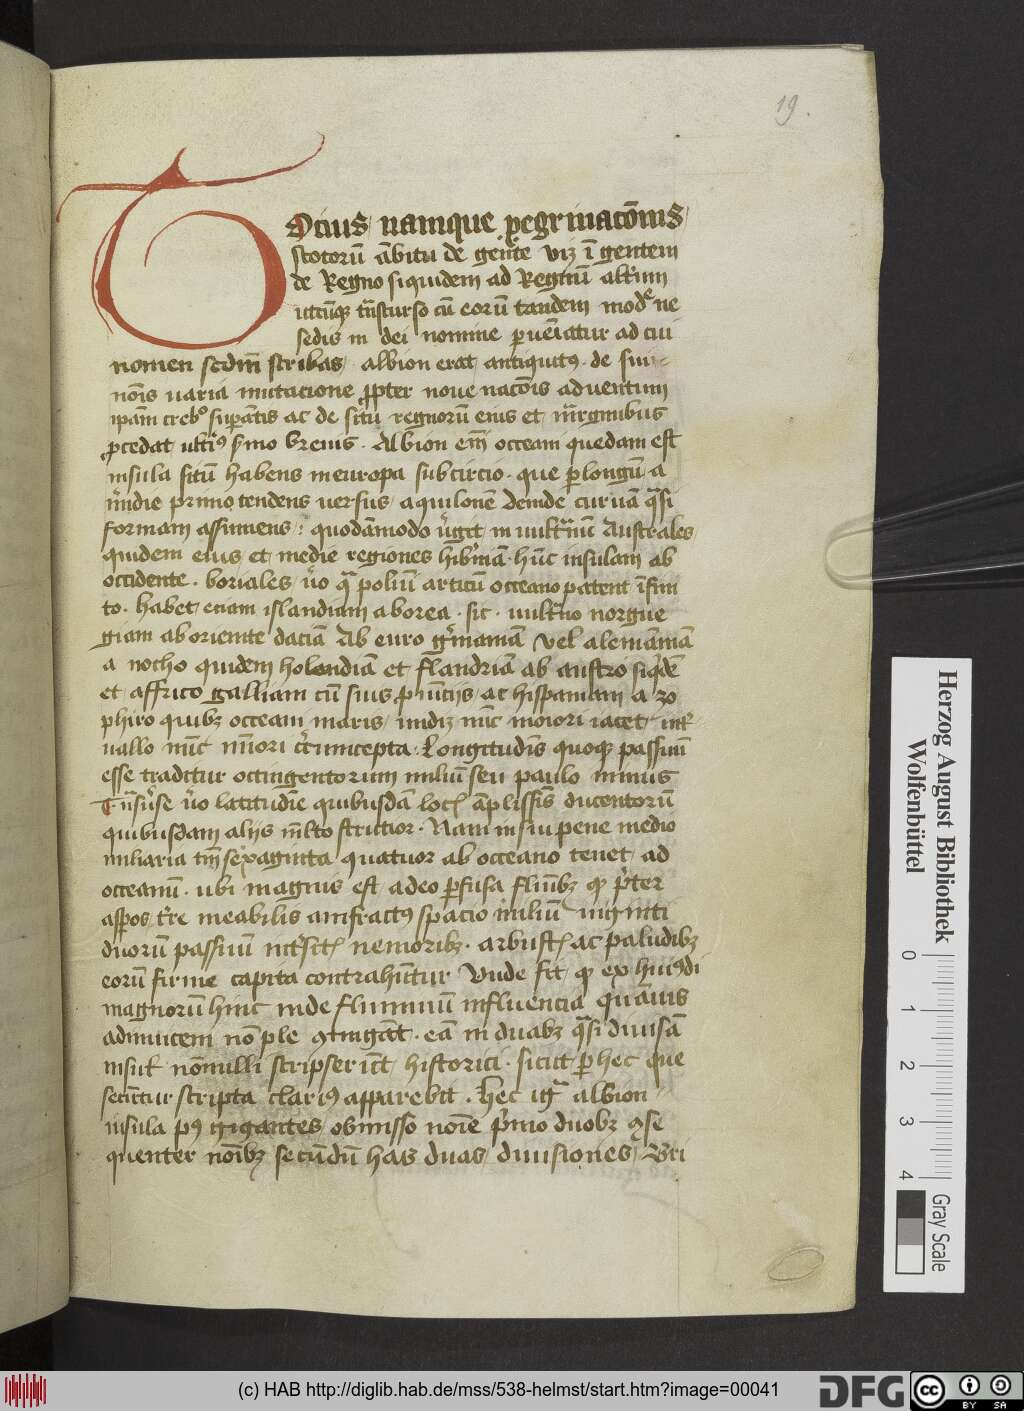 19.
Tocius namque pegrinacōnis
scotorū ābitu de gente viz ī gentem
de Regno siquidem ad Regnū altīm
utcūqz trāscurso cū eorū tandem mode ne
sedis in dei nomine pueniatur ad cui
nomen sedm scribas albion erat antiquitꝰ de sui
nōis varia mutacione ꝓpter noue nacōis adventum
ipam crebo supātis ac de situ regnorū eius et mrginibus
ꝓcedat ultiꝰ smo brevis . Albion em occeani quedam est
insula sitū habens in europa sub circio . que p longū a
mīdie primo tendens versus aquilonē deinde curvā qasi
formam assumens : quodāmodo vget in vultnū Australes
quidem eius et medie regiones hibniā hūc insulam ab
occidente . boriales vo qa polū articū occeano patent īfini
to . habet etiam islandiam a borea . sic . vultno norgue
giam ab oriente daciā Ab euro gmaniā vel alemāniā
a notho quidem holandiā et flandriā ab austro siqdē
et affrico galliam cū suis ꝓvincijs ac hispaniam a zo
phiro quibz occeani maris undiz nūc moiori iacet int
vallo nūc minori circumcepta . Longitudīs quoqz passuū
esse traditur octingentorum miliū seu paulo minus
Tnsuse vo latitudīe quibusdā locꝭ āplissīs ducentorū
quibusdam alijs mlto strictior . Nam in sui pene medio
miliaria tm sexaginta quatuor ab occeano tenet ad
occeanū . ubi magnus est adeo pfusa fluībz qz pter
aspos tre meabilis amfractꝰ spacio miliū viginti
duorū passuū intscꝭ nemoribz . arbustꝭ ac paludibz
eorū firme capita contrahūtur Unde fit qz ex huiꝰdi
magnorū hinc inde fluminū influencia quāvis
adinvicem nō ple ꝯtingāt . eā in duabz qasi divisā
insul nōnulli scripserūt historici . sicut p hec que
secūtur scripta clariꝰ apparebit . Hec igr albion
insula pꝰ gigantes obmisso noīe pmo duobz ꝯse
quenter noībz secūdū has duas divisiones Bri
Herzog August Bibliothek
Wolfenbüttel
0 1 2 3 4
Gray Scale
(c) HAB http://diglib.hab.de/mss/538-helmst/start.htm?image=00041
DFG
cc BY SA